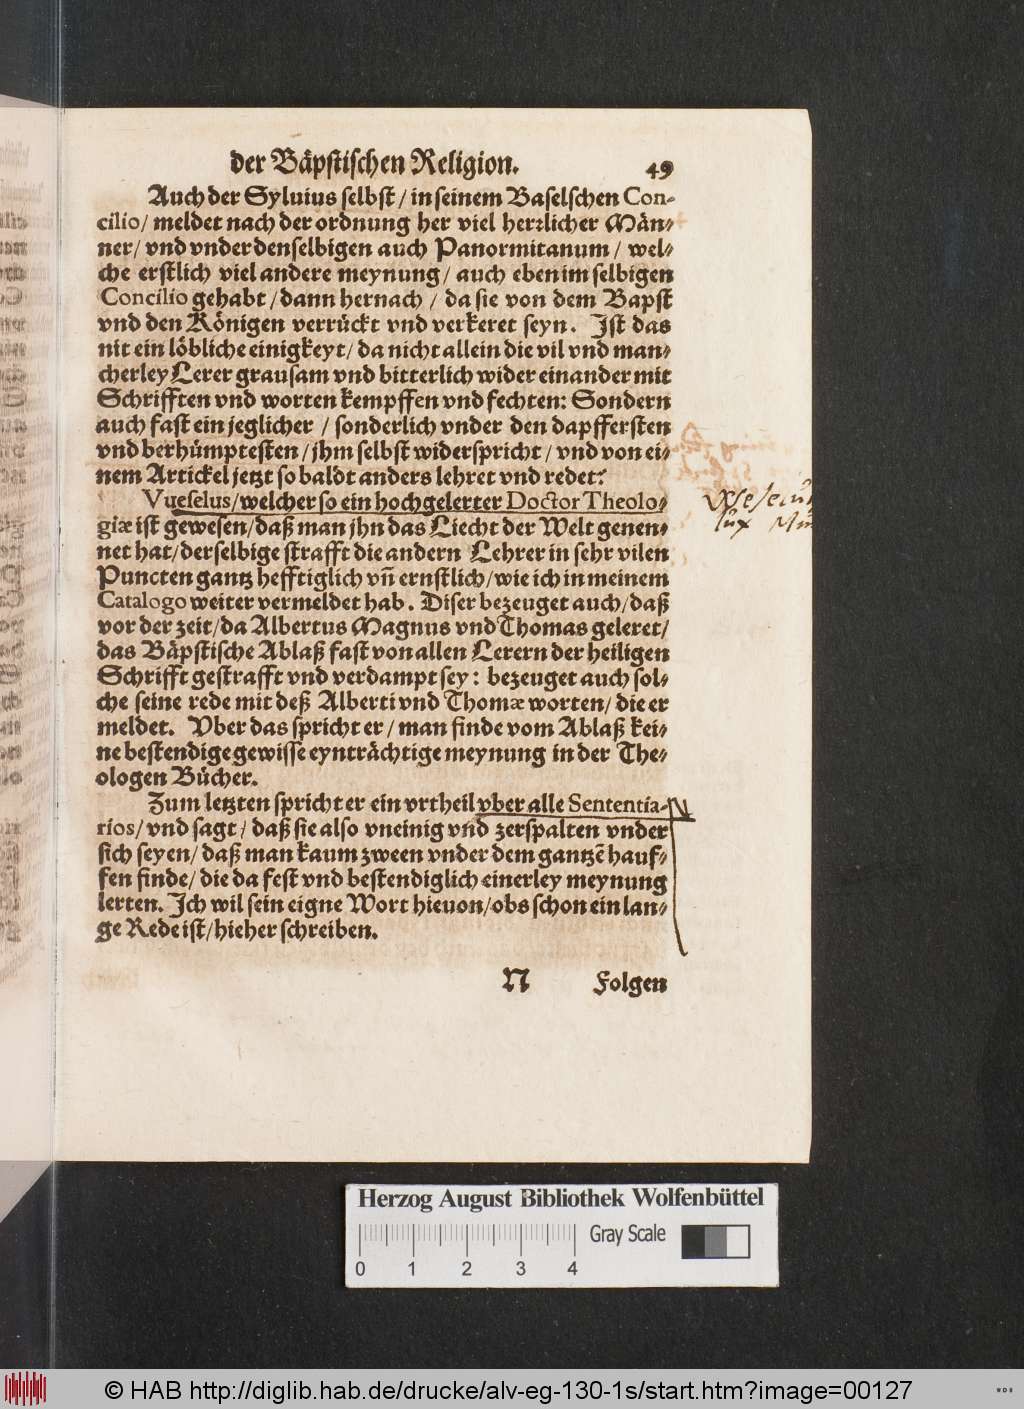 der Bäpstischen Religion. 49
Auch der Syluius selbst / in seinem Baselschen Con-
cilio / meldet nach der ordnung her viel herrlicher Män-
ner / vnd vnder denselbigen auch Panormitanum / wel-
che erstlich viel andere meynung / auch eben im selbigen
Concilio gehabt / dann hernach / da sie von dem Bapst
vnd den Königen verrückt vnd verkeret seyn. Ist das
nit ein löbliche einigkeyt / da nicht allein die vil vnd man-
cherley Lerer grausam vnd bitterlich wider einander mit
Schrifften vnd worten kempffen vnd fechten: Sondern
auch fast ein jeglicher / sonderlich vnder den dapffersten
vnd berhümptesten / jhm selbst widerspricht / vnd von ei-
nem Artickel jetzt so baldt anders lehret vnd redet?
Vueselus / welcher so ein hochgelerter Doctor Theolo-
giæ ist gewesen / daß man jhn das Liecht der Welt genen-
net hat / derselbige strafft die andern Lehrer in sehr vilen
Puncten gantz hefftiglich vñ ernstlich / wie ich in meinem
Catalogo weiter vermeldet hab. Diser bezeuget auch / daß
vor der zeit / da Albertus Magnus vnd Thomas geleret /
das Bäpstische Ablaß fast von allen Lerern der heiligen
Schrifft gestrafft vnd verdampt sey: bezeuget auch sol-
che seine rede mit deß Alberti vnd Thomæ worten / die er
meldet. Vber das spricht er / man finde vom Ablaß kei-
ne bestendige gewisse eynträchtige meynung in der The-
ologen Bücher.
Zum letzten spricht er ein vrtheil vber alle Sententia-
rios / vnd sagt / daß sie also vneinig vnd zerspalten vnder
sich seyen / daß man kaum zween vnder dem gantzē hauf-
fen finde / die da fest vnd bestendiglich einerley meynung
lerten. Ich wil sein eigne Wort hieuon / obs schon ein lan-
ge Rede ist / hieher schreiben.
N Folgen
lux
Herzog August Bibliothek Wolfenbüttel
Gray Scale
0 1 2 3 4
© HAB http://diglib.hab.de/drucke/alv-eg-130-1s/start.htm?image=00127